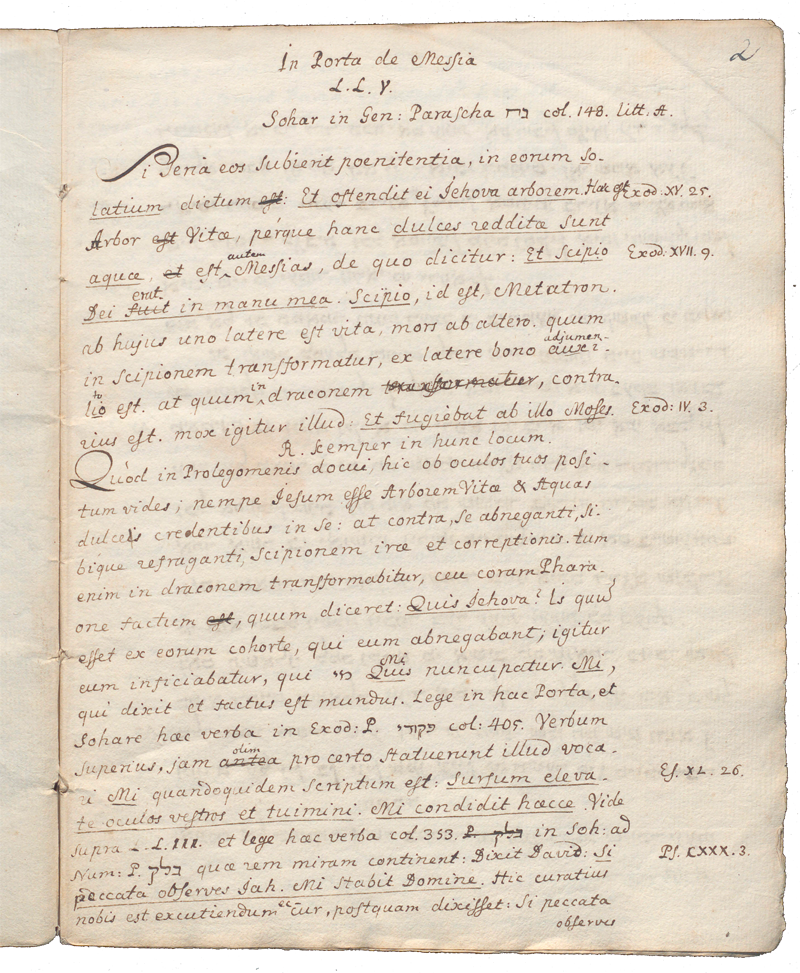 2
In Porta de Messia
L. L. V.
Sohar in Gen: Parascha col. 148. litt. A.
Si Seria eos subierit poenitentia, in eorum so-
latium dictum est: Et ostendit ei Jehova arborem. Haec est Exod: XV. 25.
Arbor est Vitæ, perque hanc dulces redditæ sunt
aquæ, et est autem Messias, de quo dicitur: Et Scipio Exod: XVII. 9.
Dei fuit erat in manu mea. Scipio, id est, Metatron.
ab hujus uno latere est vita, mors ab altero. quum
in scipionem transformatur, ex latere bono auxi- adjumen-
lio to est. at quum in draconem transformatur, contra-
rius est. mox igitur illud: Et fugiebat ab illo Moses. Exod: IV. 3.
R. Kemper in hunc locum.
Quod in Prolegomenis docui, hic ob oculos tuos posi-
tum vides; nempe Jesum esse Arborem Vitæ & Aquas
dulces credentibus in se: at contra, se abneganti, si-
bique refraganti, scipionem iræ et correptionis. tum
enim in draconem transformabitur, ceu coram Phara-
one factum est, quum diceret: Quis Jehova? Is quum
esset ex eorum cohorte, qui eum abnegabant; igitur
eum inficiabatur, qui מי Quis Mi nuncupatur. Mi,
qui dixit et factus est mundus. Lege in hac Porta, et
Sohare hæc verba in Exod: P. פקודי col: 405. Verbum
superius, jam antea olim pro certo statuerunt illud voca-
ri Mi quandoquidem scriptum est: Sursum eleva- Es. XL. 26.
te oculos vestros et tuimini. Mi condidit hæcce. Vide
supra L. L. III. et lege hæc verba col. 353. P. בלק in Soh: ad
Num: P. בלק quæ rem miram continent: Dixit David: Si Ps. CXXX. 3.
peccata observes Jah. Mi stabit Domine. Hic curatius
nobis est excutiendum ec- cur, postquam dixisset: Si peccata
observes